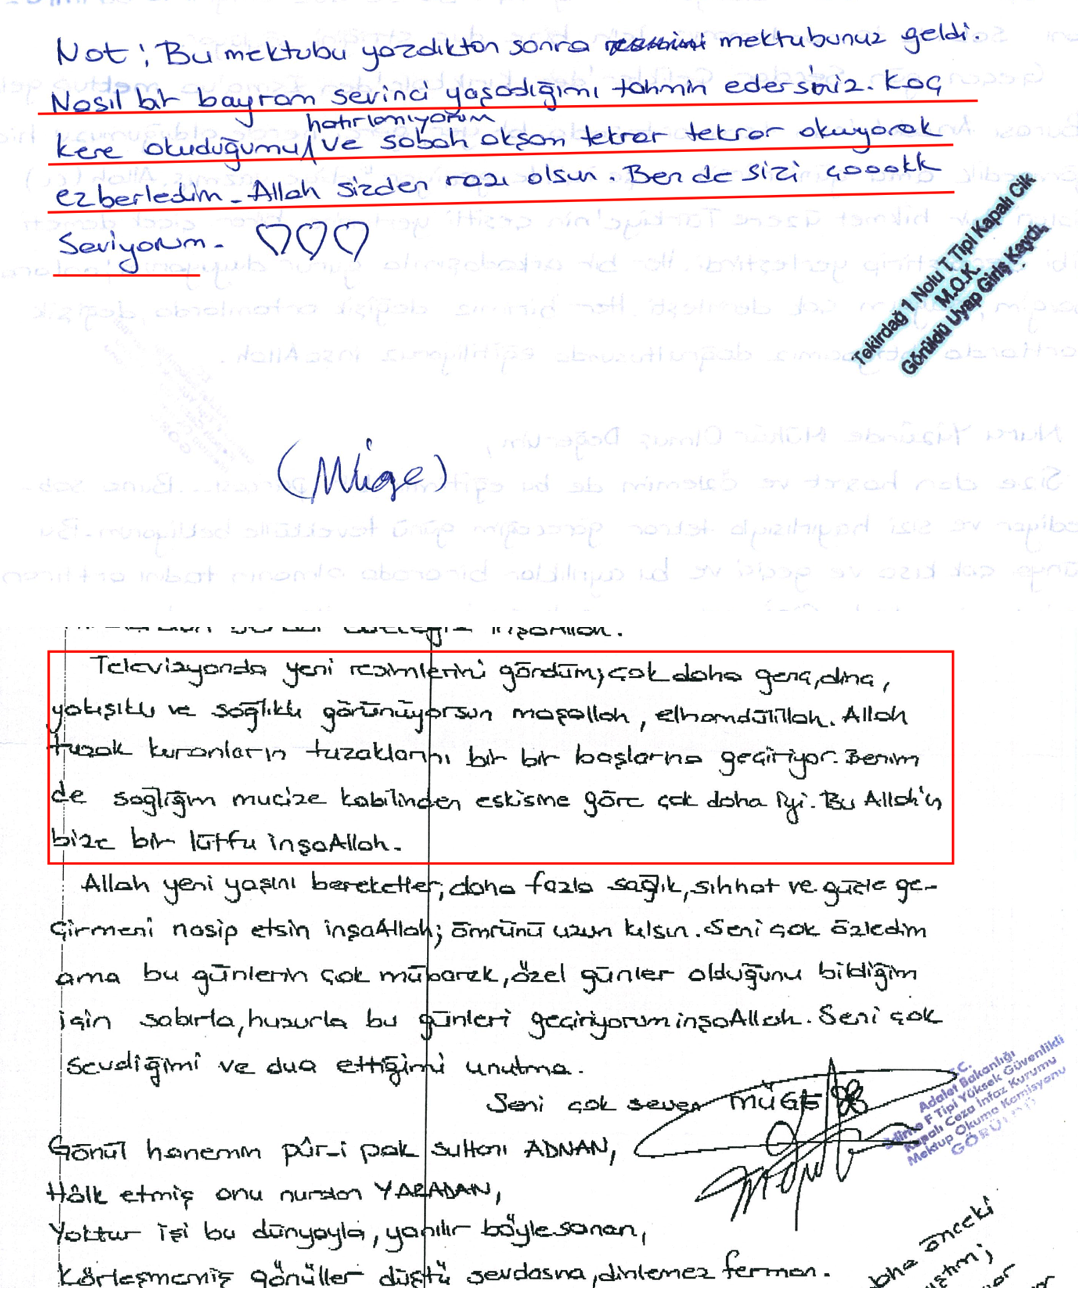 Not: Bu mektubu yazdıktan sonra mektubunuz geldi.
Nasıl bir bayram sevinci yaşadığımı tahmin edersiniz. Kaç
hatırlamıyorum
kere okuduğumu ve sabah akşam tekrar tekrar okuyarak
ezberledim. Allah sizden razı olsun. Ben de sizi çooookk
Seviyorum. ♡♡♡
Tekirdağ 1 Nolu T Tipi Kapalı Cik
M.O.K.
Görüldü Uyap Giriş Kaydı
(Müge)
inşaAllah.
Televizyonda yeni resimlerini gördüm, çok daha genç, dinç,
yakışıklı ve sağlıklı görünüyorsun maşallah, elhamdülillah. Allah
tuzak kuranların tuzaklarını bir bir başlarına geçiriyor. Benim
de sağlığım mucize kabilinden eskisine göre çok daha iyi. Bu Allah'ın
bize bir lütfu inşaAllah.
Allah yeni yaşını bereketler, daha fazla sağlık, sıhhat ve güçle ge-
çirmeni nasip etsin inşaAllah; ömrünü uzun kılsın. Seni çok özledim
ama bu günlerin çok mübarek, özel günler olduğunu bildiğim
için sabırla, huzurla bu günleri geçiriyorum inşaAllah. Seni çok
sevdiğimi ve dua ettiğimi unutma.
Seni çok seven MÜGE
T.C.
Adalet Bakanlığı
Edirne F Tipi Yüksek Güvenlikli
Kapalı Ceza İnfaz Kurumu
Mektup Okuma Komisyonu
GÖRÜLDÜ
Gönül hanemin pûr-i pak sultanı ADNAN,
Hâlk etmiş onu nurdan YARADAN,
Yoktur işi bu dünyayla, yanılır böyle sanan,
Körleşmemiş gönüller düştü sevdasına, dinlemez ferman.
daha önceki